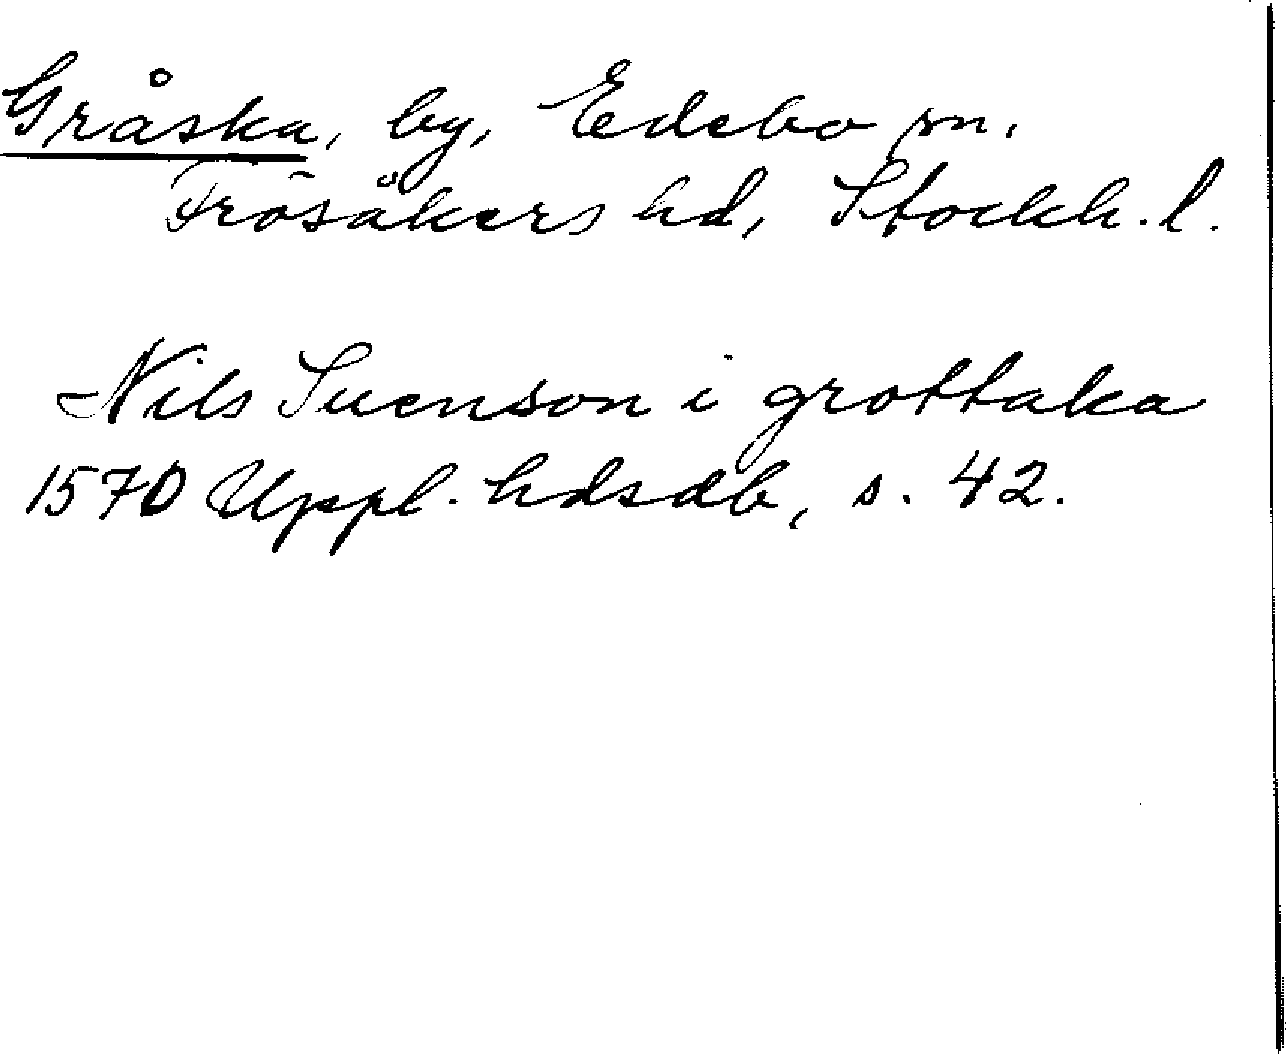 Gråska, by, Edebo sn.
Frösåkers hd, Stockh. l.
Nils Suenson i grottaka
1570 Uppl. hdsdb, s. 42.